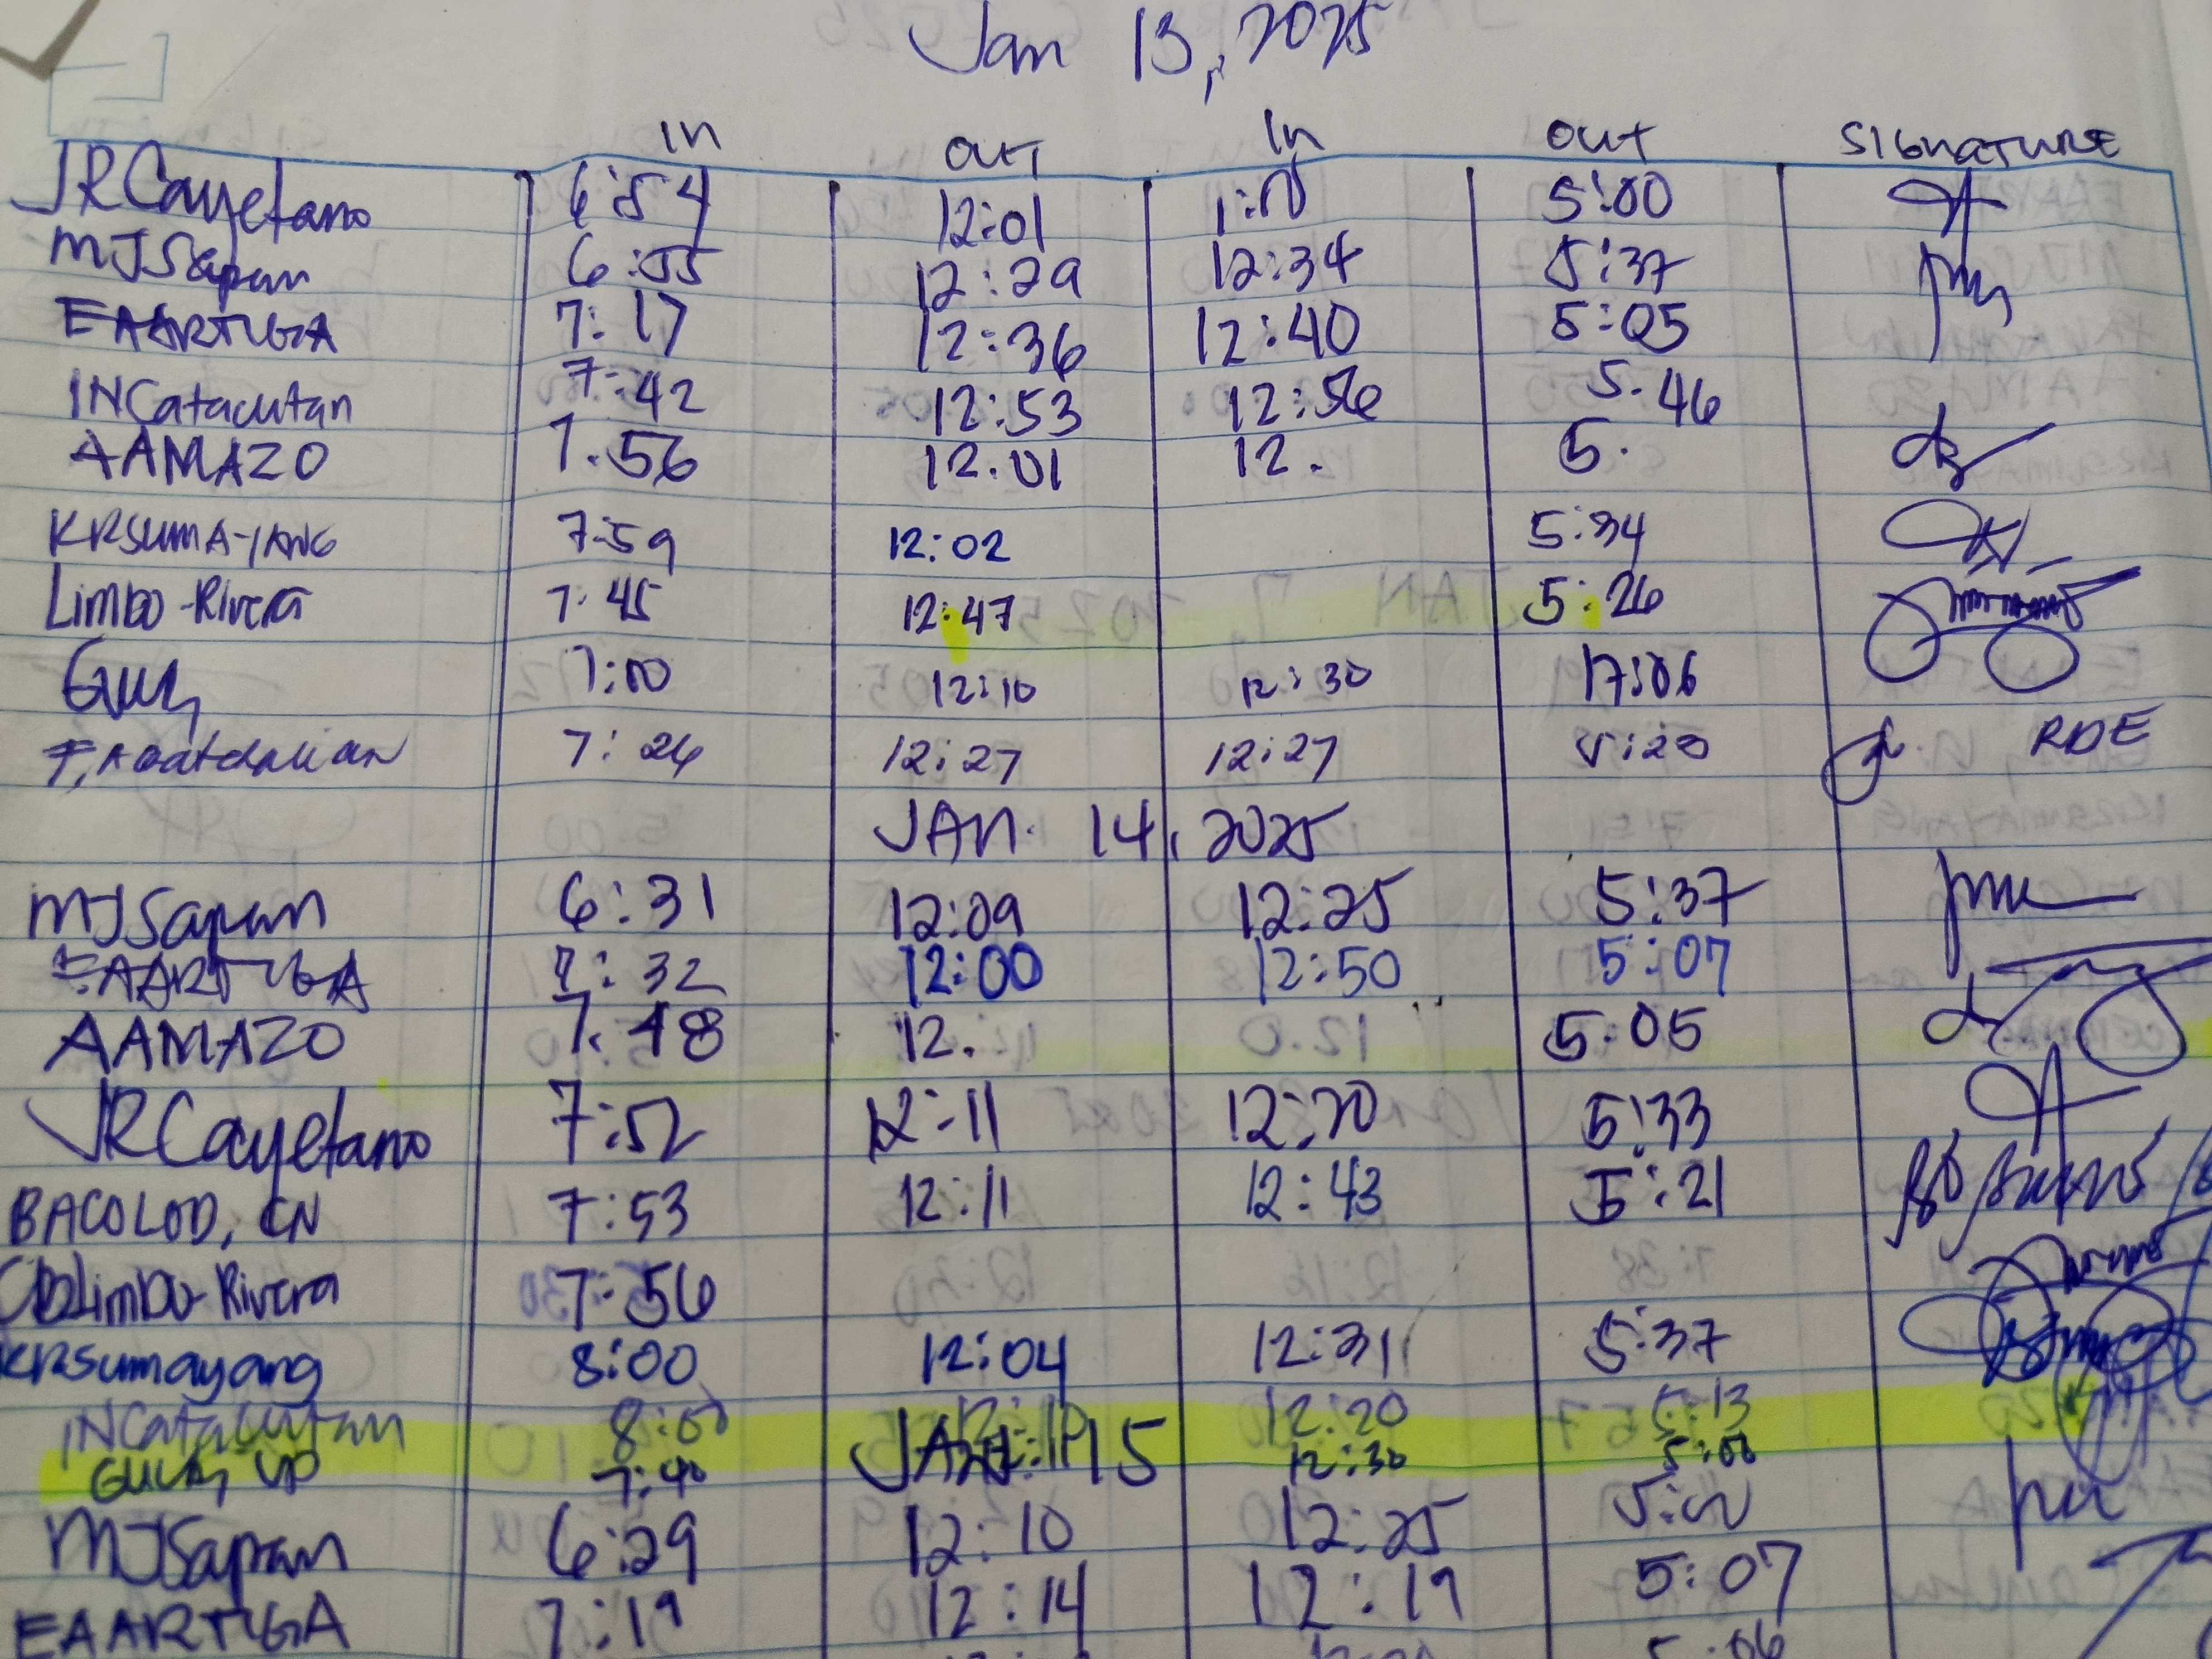 Jan 13, 2025
In OUT In OUT SIGNATURE
JRCayetano 6:54 12:01 1:00 5:00
MJSapan 6:55 12:29 12:34 5:37
EAARTUGA 7:17 12:36 12:40 5:05
INCatacutan 7:42 12:53 12:56 5.46
AAMAZO 7.56 12.01 12. 5.
KRSUMAYANG 7:59 12:02 5:34
Limbo-Rivera 7:45 12:47 5:26
7:00 12:10 12:30 17:06
7:26 12:27 12:27 5:20 RDE
JAN. 14, 2025
MJSapan 6:31 12:09 12:25 5:37
EAARTUGA 7:32 12:00 12:50 5:07
AAMAZO 7.48 12. 5.05
JRCayetano 7:52 12:11 12:20 5:33
BACOLOD, CN 7:53 12:11 12:43 5:21
Limbo-Rivera 7:56
KRSumayang 8:00 12:04 12:31 5:37
INCatacutan 8:00 12:20 5:13
JAN. 15
7:40 12:30 5:00
MJSapan 6:29 12:10 12:25 5:00
EAARTUGA 7:19 12:14 12:19 5:07
5.06